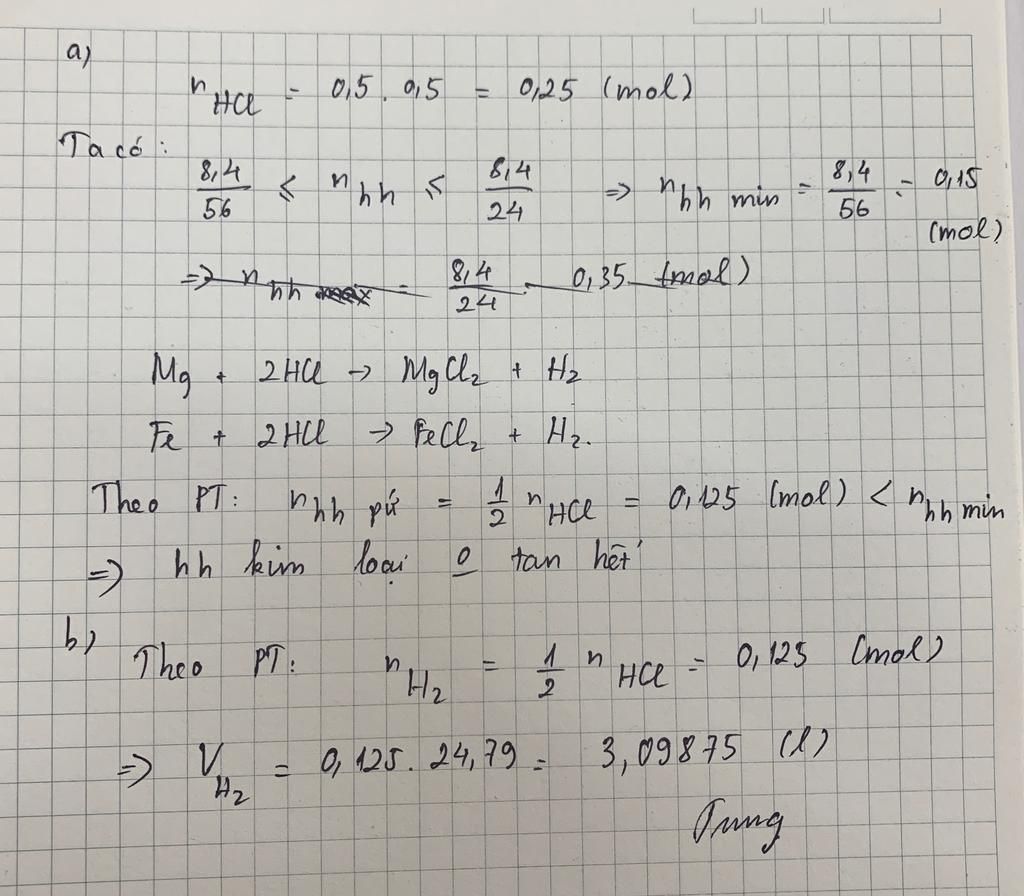 a)
n HCl = 0,5 . 0,5 = 0,25 (mol)
Ta có:
8,4/56 ≤ n hh ≤ 8,4/24 => n hh min = 8,4/56 = 0,15 (mol)
=> n hh max = 8,4/24 = 0,35 (mol)
Mg + 2HCl → MgCl2 + H2
Fe + 2HCl → FeCl2 + H2.
Theo PT: n hh pứ = 1/2 n HCl = 0,125 (mol) < n hh min
=> hh kim loại o tan hết
b)
Theo PT: n H2 = 1/2 n HCl = 0,125 (mol)
=> V H2 = 0,125. 24,79 = 3,09875 (l)
Trung